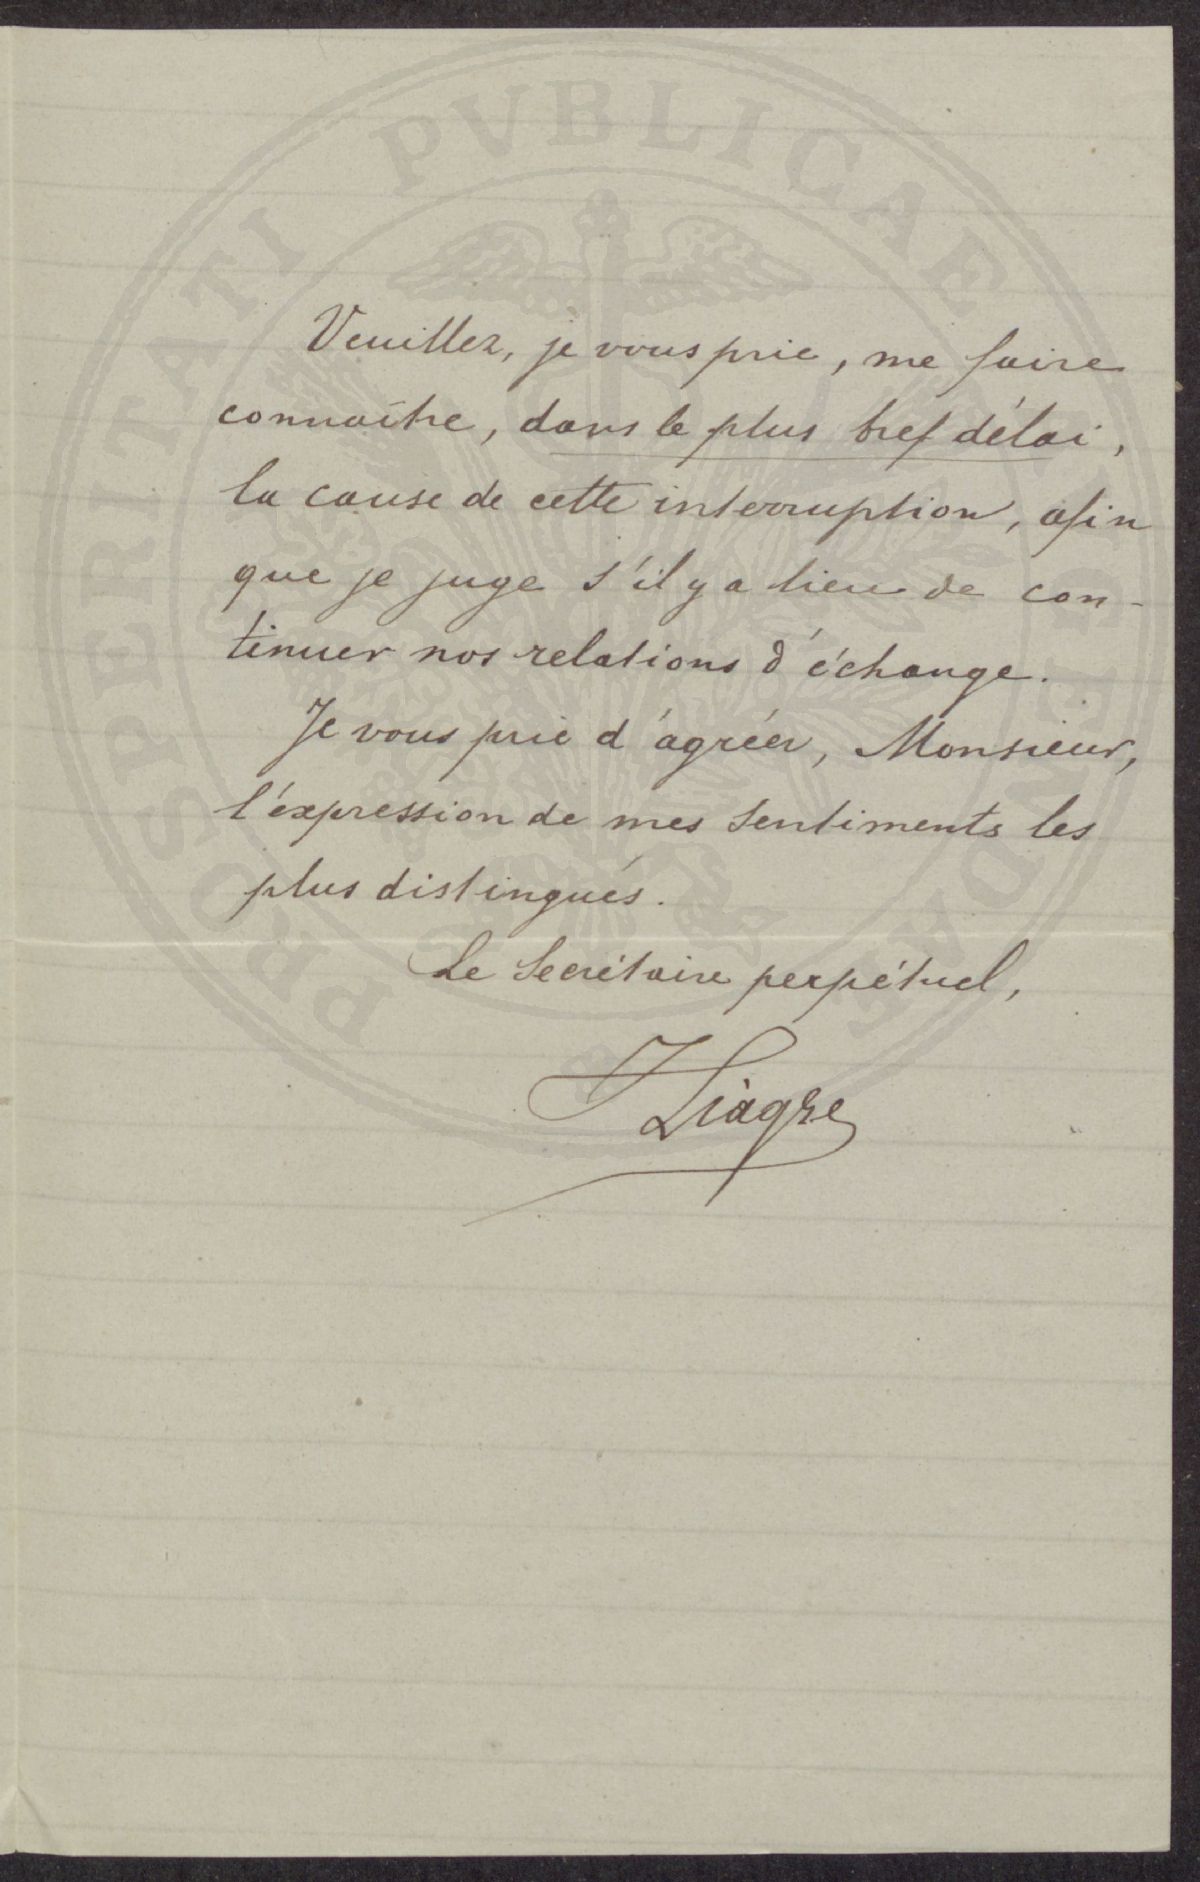 PROSPERITATI PVBLICAE AVGENDAE
Veuillez, je vous prie, me faire
connaître, dans le plus bref délai,
la cause de cette interruption, afin
que je juge s'il y a lieu de con-
tinuer nos relations d'échange.
Je vous prie d'agréer, Monsieur,
l'expression de mes sentiments les
plus distingués.
Le Secrétaire perpétuel,
J Liagre